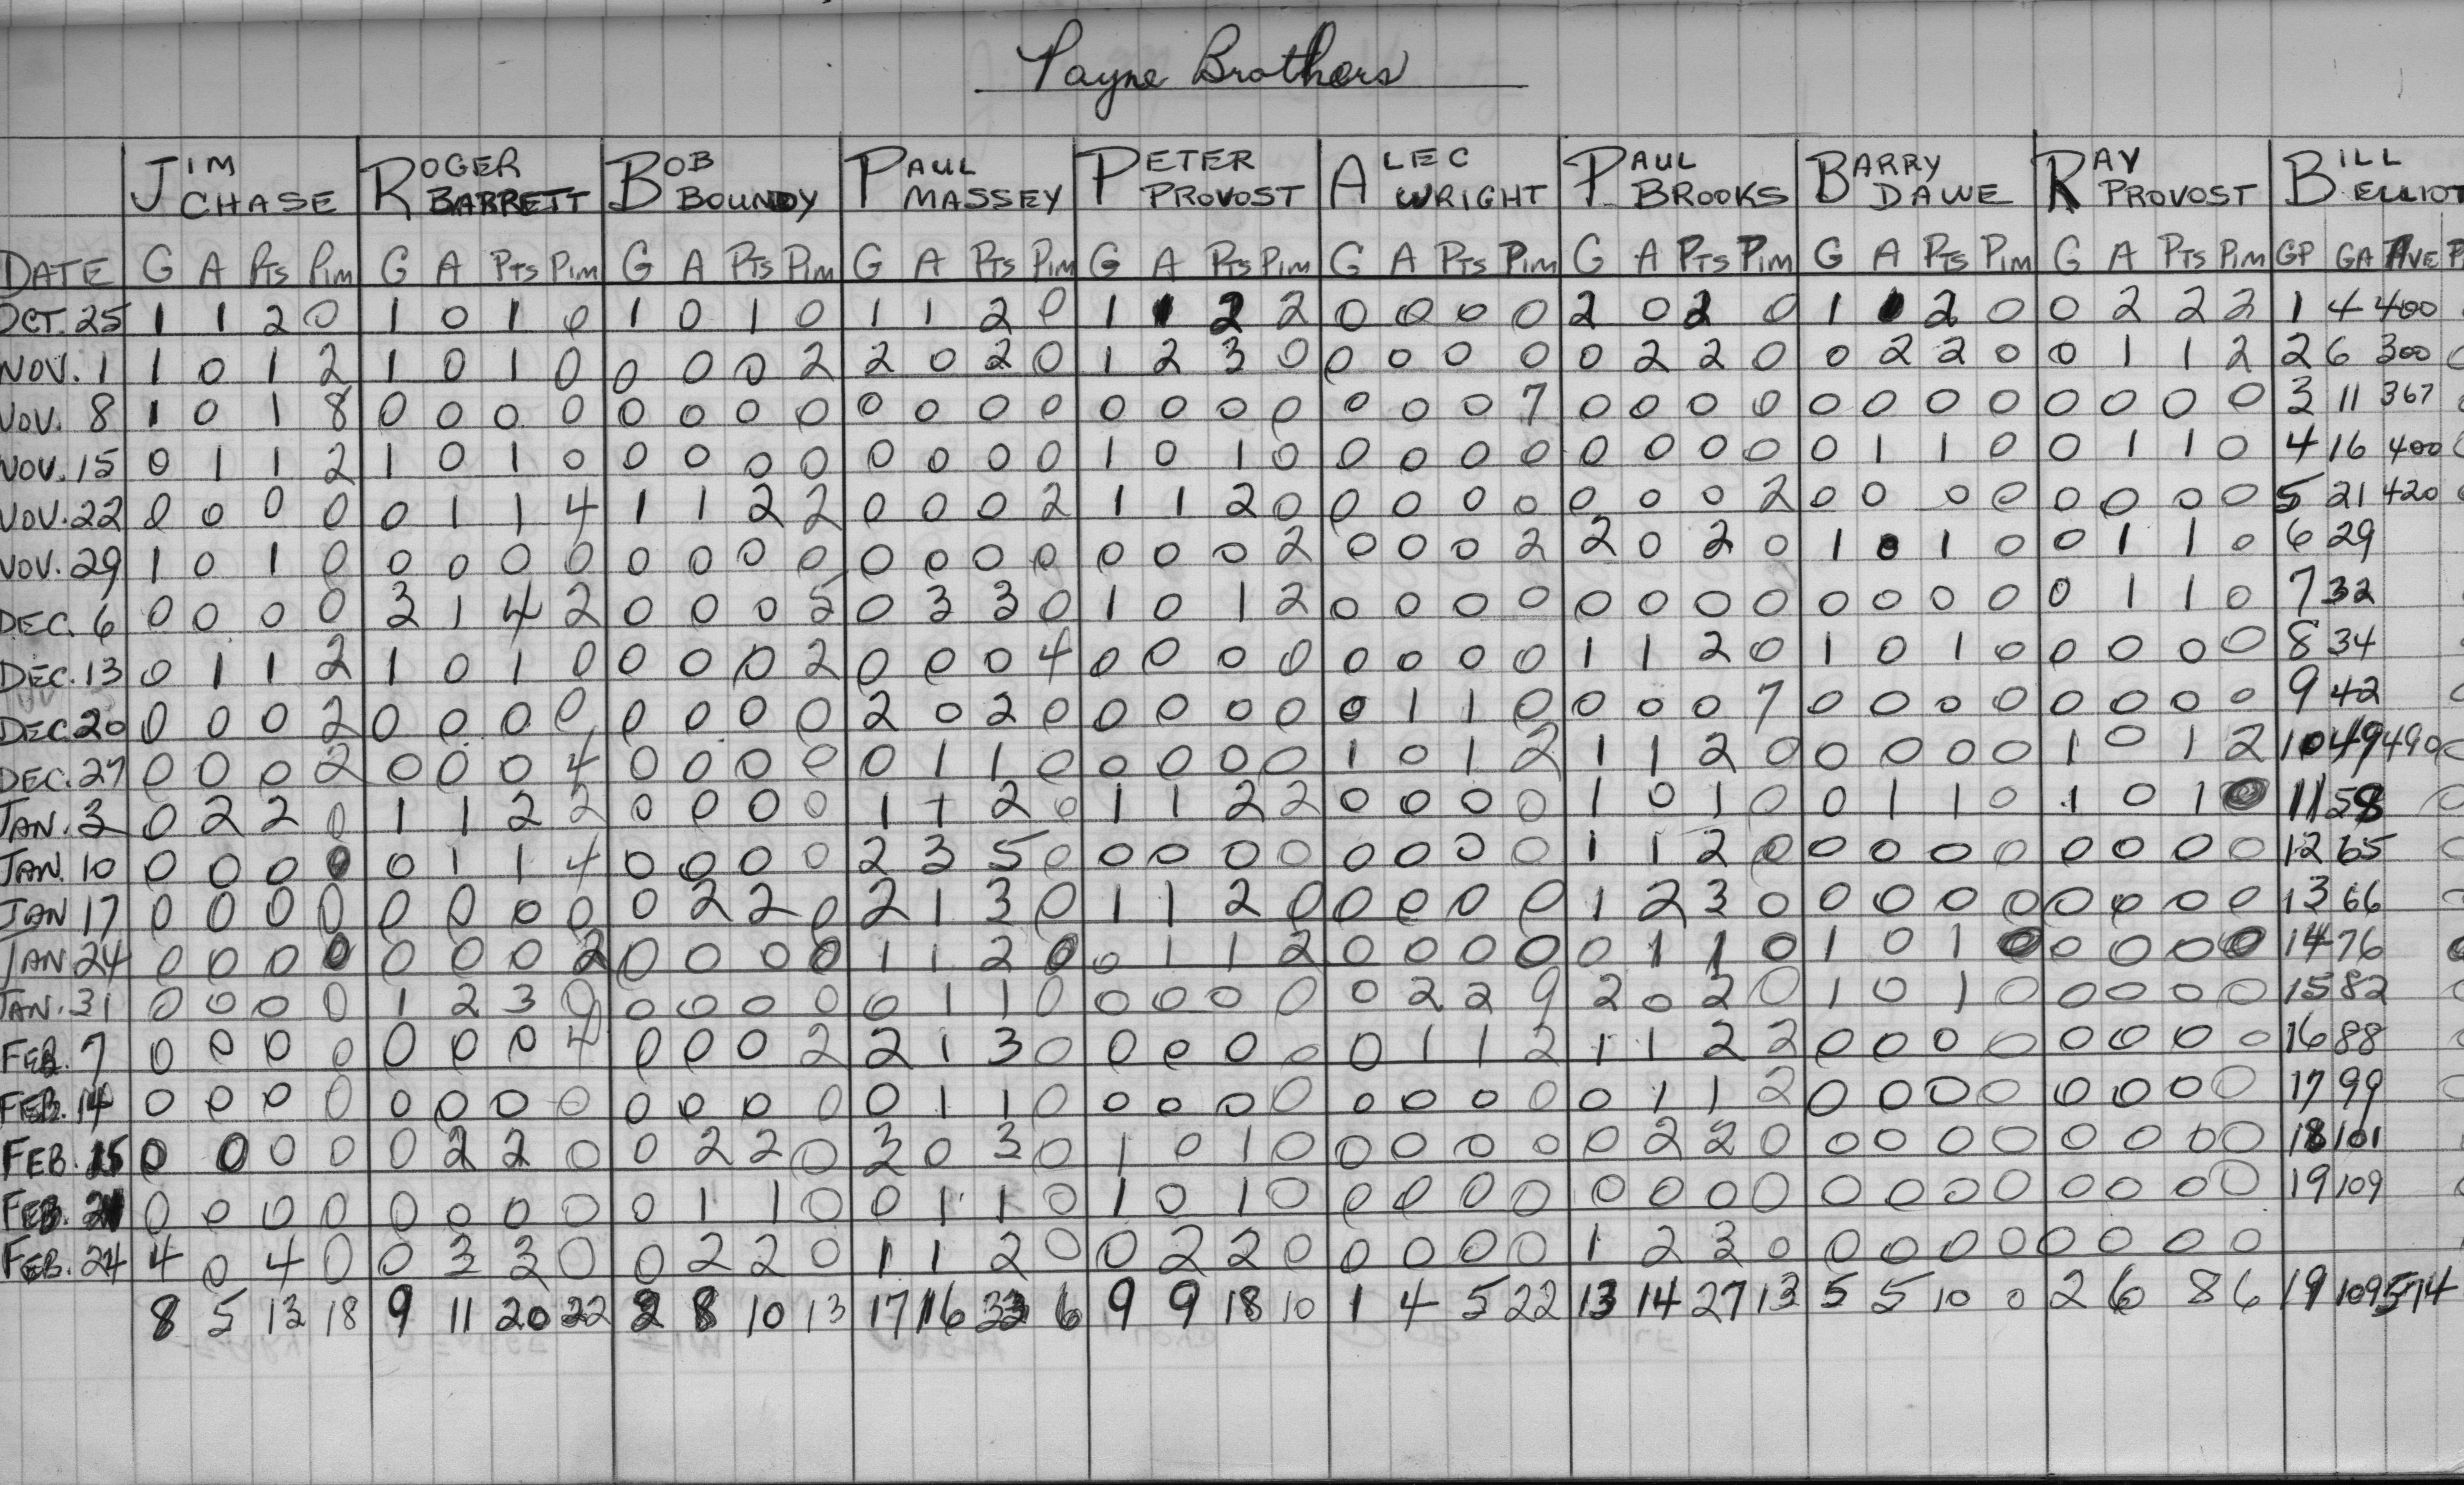 Payne Brothers
JIM CHASE ROGER BARRETT BOB BOUNDY PAUL MASSEY PETER PROVOST ALEC WRIGHT PAUL BROOKS BARRY DAWE RAY PROVOST BILL ELLIOT
DATE G A Pts Pim G A Pts Pim G A Pts Pim G A Pts Pim G A Pts Pim G A Pts Pim G A Pts Pim G A Pts Pim G A Pts Pim GP GA AVE P
OCT. 25 1 1 2 0 1 0 1 0 1 0 1 0 1 1 2 0 1 1 2 2 0 0 0 0 2 0 2 0 1 1 2 0 0 2 2 2 1 4 400
NOV. 1 1 0 1 2 1 0 1 0 0 0 0 2 2 0 2 0 1 2 3 0 0 0 0 0 0 2 2 0 0 2 2 0 0 1 1 2 2 6 300
NOV. 8 1 0 1 8 0 0 0 0 0 0 0 0 0 0 0 0 0 0 0 0 0 0 0 7 0 0 0 0 0 0 0 0 0 0 0 0 3 11 367
NOV. 15 0 1 1 2 1 0 1 0 0 0 0 0 0 0 0 0 1 0 1 0 0 0 0 0 0 0 0 0 0 1 1 0 0 1 1 0 4 16 400
NOV. 22 0 0 0 0 0 1 1 4 1 1 2 2 0 0 0 2 1 1 2 0 0 0 0 0 0 0 0 2 0 0 0 0 0 0 0 0 5 21 420
NOV. 29 1 0 1 0 0 0 0 0 0 0 0 0 0 0 0 0 0 0 0 2 0 0 0 2 2 0 2 0 1 0 1 0 0 1 1 0 6 29
DEC. 6 0 0 0 0 3 1 4 2 0 0 0 5 0 3 3 0 1 0 1 2 0 0 0 0 0 0 0 0 0 0 0 0 0 1 1 0 7 32
DEC. 13 0 1 1 2 1 0 1 0 0 0 0 2 0 0 0 4 0 0 0 0 0 0 0 0 1 1 2 0 1 0 1 0 0 0 0 0 8 34
DEC. 20 0 0 0 2 0 0 0 0 0 0 0 0 2 0 2 0 0 0 0 0 0 1 1 0 0 0 0 7 0 0 0 0 0 0 0 0 9 42
DEC. 27 0 0 0 2 0 0 0 4 0 0 0 0 0 1 1 0 0 0 0 0 1 0 1 2 1 1 2 0 0 0 0 0 1 0 1 2 10 49 490
JAN. 3 0 2 2 0 1 1 2 2 0 0 0 0 1 1 2 0 1 1 2 2 0 0 0 0 1 0 1 0 0 1 1 0 1 0 1 0 11 58
JAN. 10 0 0 0 0 0 1 1 4 0 0 0 0 2 3 5 0 0 0 0 0 0 0 0 0 1 1 2 0 0 0 0 0 0 0 0 0 12 65
JAN 17 0 0 0 0 0 0 0 0 0 2 2 0 2 1 3 0 1 1 2 0 0 0 0 0 1 2 3 0 0 0 0 0 0 0 0 0 13 66
JAN 24 0 0 0 0 0 0 0 2 0 0 0 0 1 1 2 0 0 1 1 2 0 0 0 0 0 1 1 0 1 0 1 0 0 0 0 0 14 76
JAN. 31 0 0 0 0 1 2 3 0 0 0 0 0 0 1 1 0 0 0 0 0 0 2 2 9 2 0 2 0 1 0 1 0 0 0 0 0 15 82
FEB. 7 0 0 0 0 0 0 0 4 0 0 0 2 2 1 3 0 0 0 0 0 0 1 1 2 1 1 2 2 0 0 0 0 0 0 0 0 16 88
FEB. 14 0 0 0 0 0 0 0 0 0 0 0 0 0 1 1 0 0 0 0 0 0 0 0 0 0 1 1 2 0 0 0 0 0 0 0 0 17 99
FEB. 15 0 0 0 0 0 2 2 0 0 2 2 0 3 0 3 0 1 0 1 0 0 0 0 0 0 2 2 0 0 0 0 0 0 0 0 0 18 101
FEB. 21 0 0 0 0 0 0 0 0 0 1 1 0 0 1 1 0 1 0 1 0 0 0 0 0 0 0 0 0 0 0 0 0 0 0 0 0 19 109
FEB. 24 4 0 4 0 0 3 3 0 0 2 2 0 1 1 2 0 0 2 2 0 0 0 0 0 1 2 3 0 0 0 0 0 0 0 0 0
8 5 13 18 9 11 20 22 2 8 10 13 17 16 33 6 9 9 18 10 1 4 5 22 13 14 27 13 5 5 10 0 2 6 8 6 19 109 574